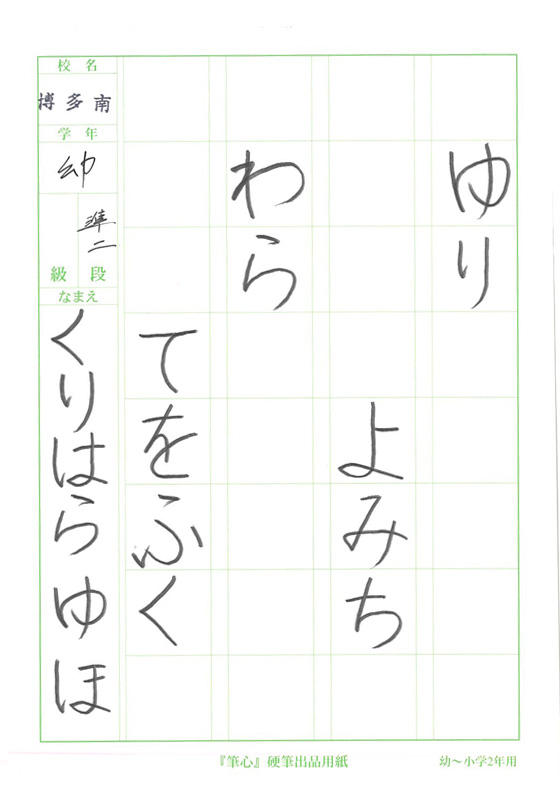 ゆり
よみち
わら
てをふく
校名
博多南
学年
幼
準二
級 段
なまえ
くりはらゆほ
『筆心』硬筆出品用紙
幼～小学2年用